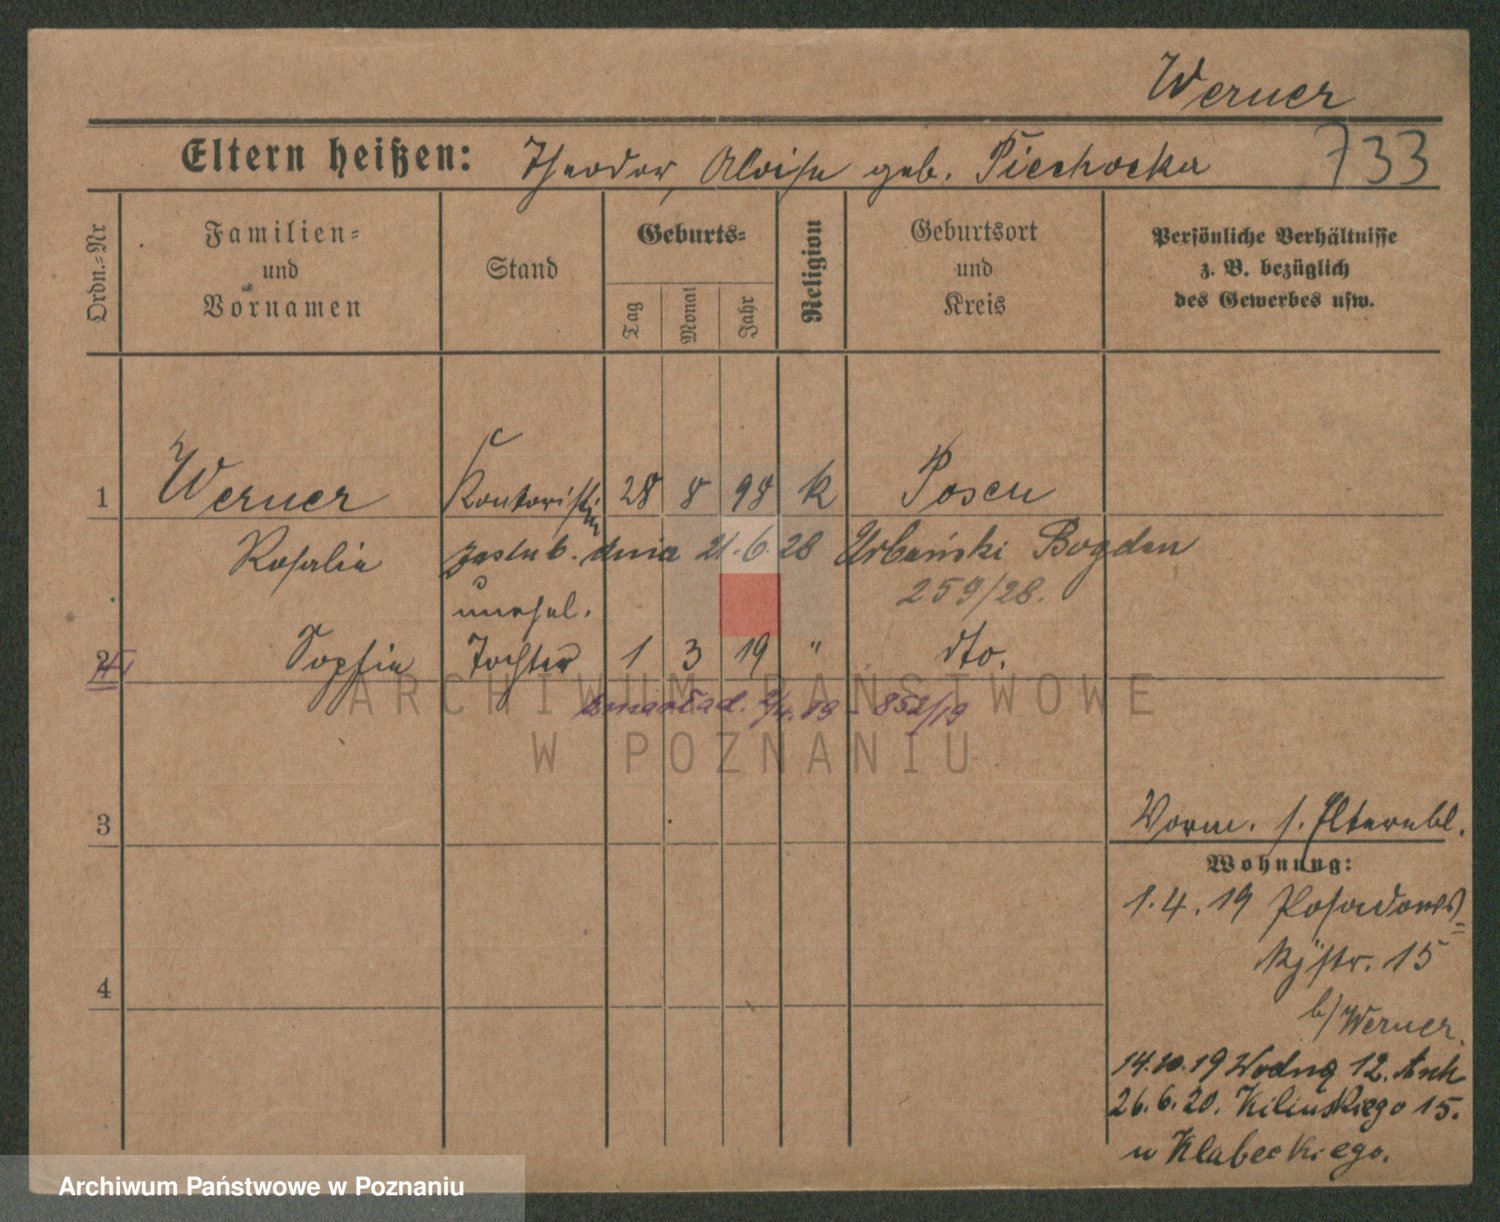 Werner
Eltern heißen: Theodor, Aloise geb. Piechocka
733
Ordn.=Nr
Familien=
und
Vornamen
Stand
Geburts=
Tag
Monat
Jahr
Religion
Geburtsort
und
Kreis
Persönliche Verhältnisse
z. B. bezüglich
des Gewerbes usw.
1 Werner Kontoristin 28 8 98 k Posen
Rosalie zaślub. dnia 21.6.28 Urbański Bogdan
259/28.
unehel.
2 Sophie Tochter 1 3 19 " dto.
zmarła d. 852/19
ARCHIWUM PAŃSTWOWE
W POZNANIU
3
Vorm. s. Elternbl.
Wohnung:
1.4.19 Posadows=
kystr. 15
4
b/Werner.
14.10.19 Wodną 12.
26.6.20. Kilińskiego 15.
u Klabeckiego.
Archiwum Państwowe w Poznaniu